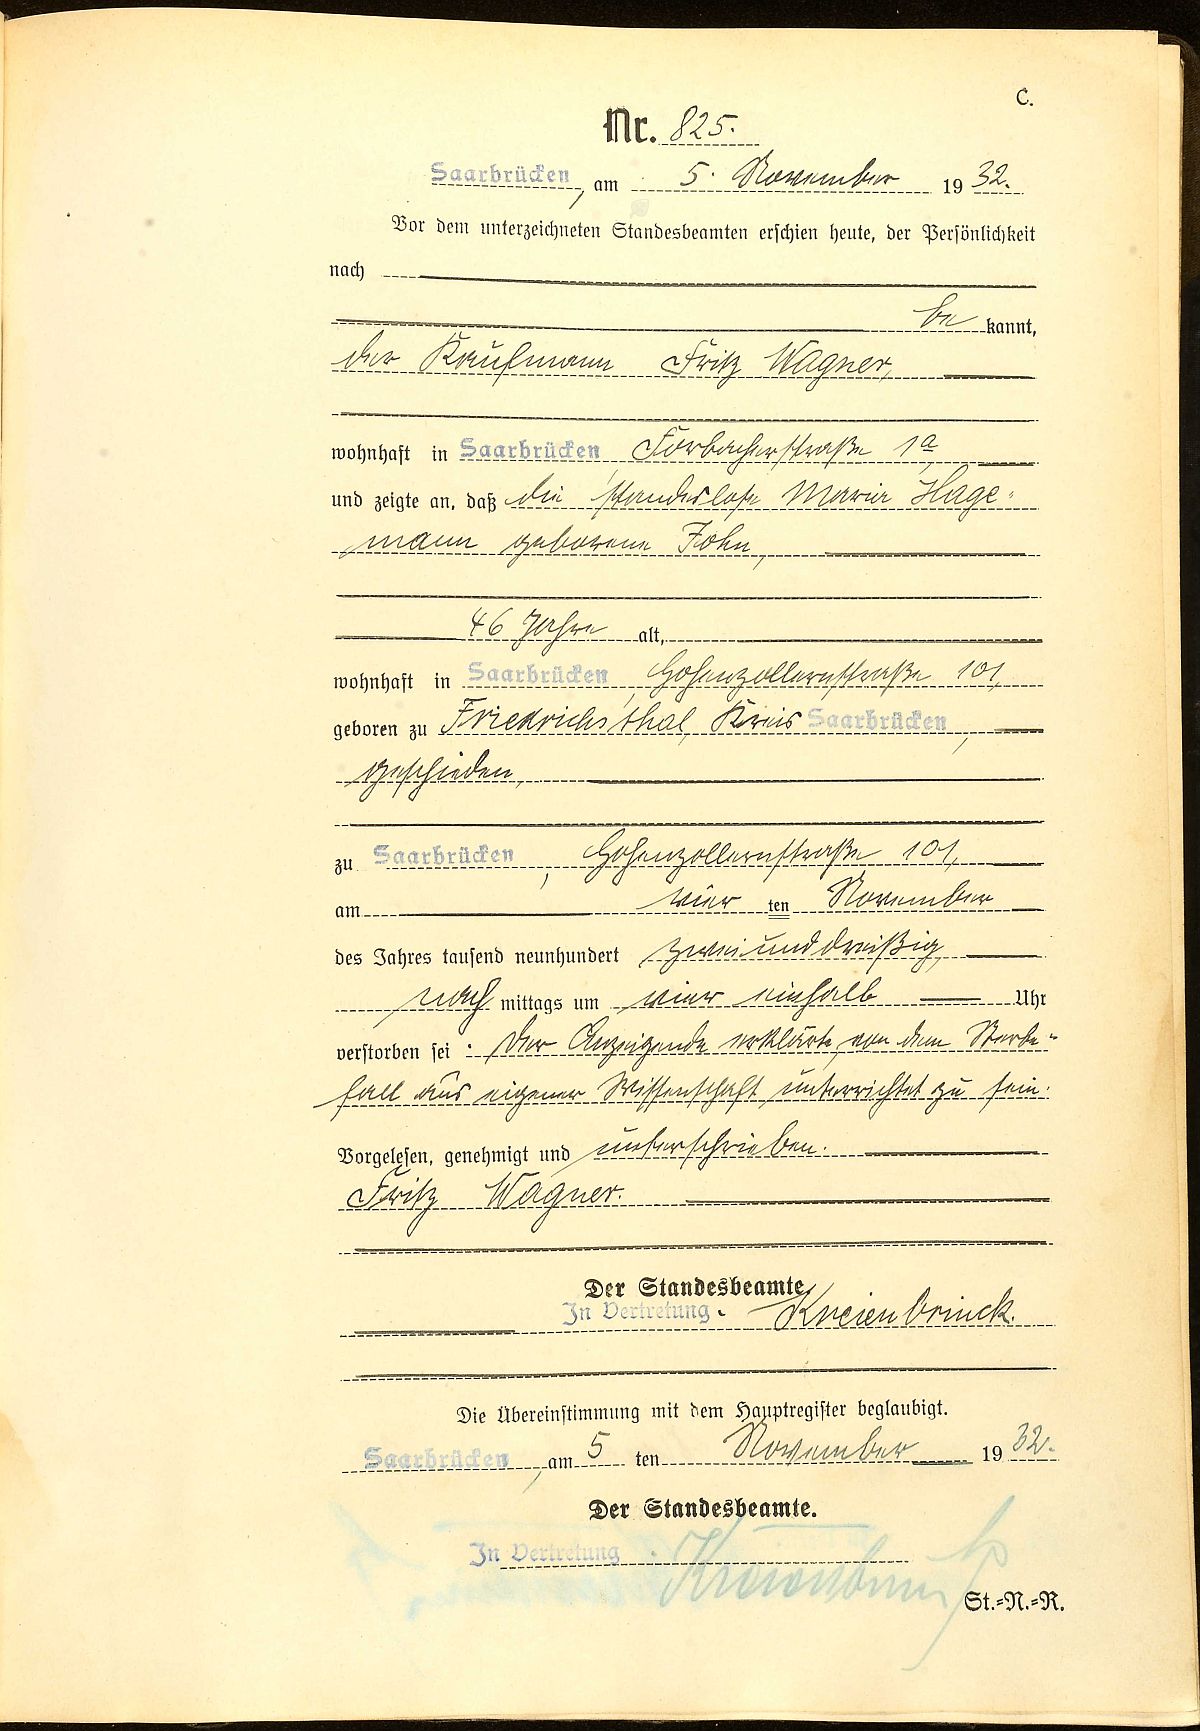 C.
Nr. 825.
Saarbrücken, am 5. November 1932.
Vor dem unterzeichneten Standesbeamten erschien heute, der Persönlichkeit
nach
be kannt,
der Kaufmann Fritz Wagner,
wohnhaft in Saarbrücken, Forbacherstraße 1a
und zeigte an, daß die standeslose Maria Hage-
mann geborene John,
46 Jahre alt,
wohnhaft in Saarbrücken, Hohenzollernstraße 101,
geboren zu Friedrichsthal, Kreis Saarbrücken,
geschieden,
zu Saarbrücken, Hohenzollernstraße 101,
am vier ten November
des Jahres tausend neunhundert zweiunddreißig,
nach mittags um vier einhalb Uhr
verstorben sei. Der Anzeigende erklärte, von dem Sterbe-
fall aus eigener Wissenschaft unterrichtet zu sein.
Vorgelesen, genehmigt und unterschrieben.
Fritz Wagner.
Der Standesbeamte
In Vertretung. Kreienbrinck.
Die Übereinstimmung mit dem Hauptregister beglaubigt.
Saarbrücken, am 5 ten November 1932.
Der Standesbeamte.
In Vertretung.
St.=N.=R.